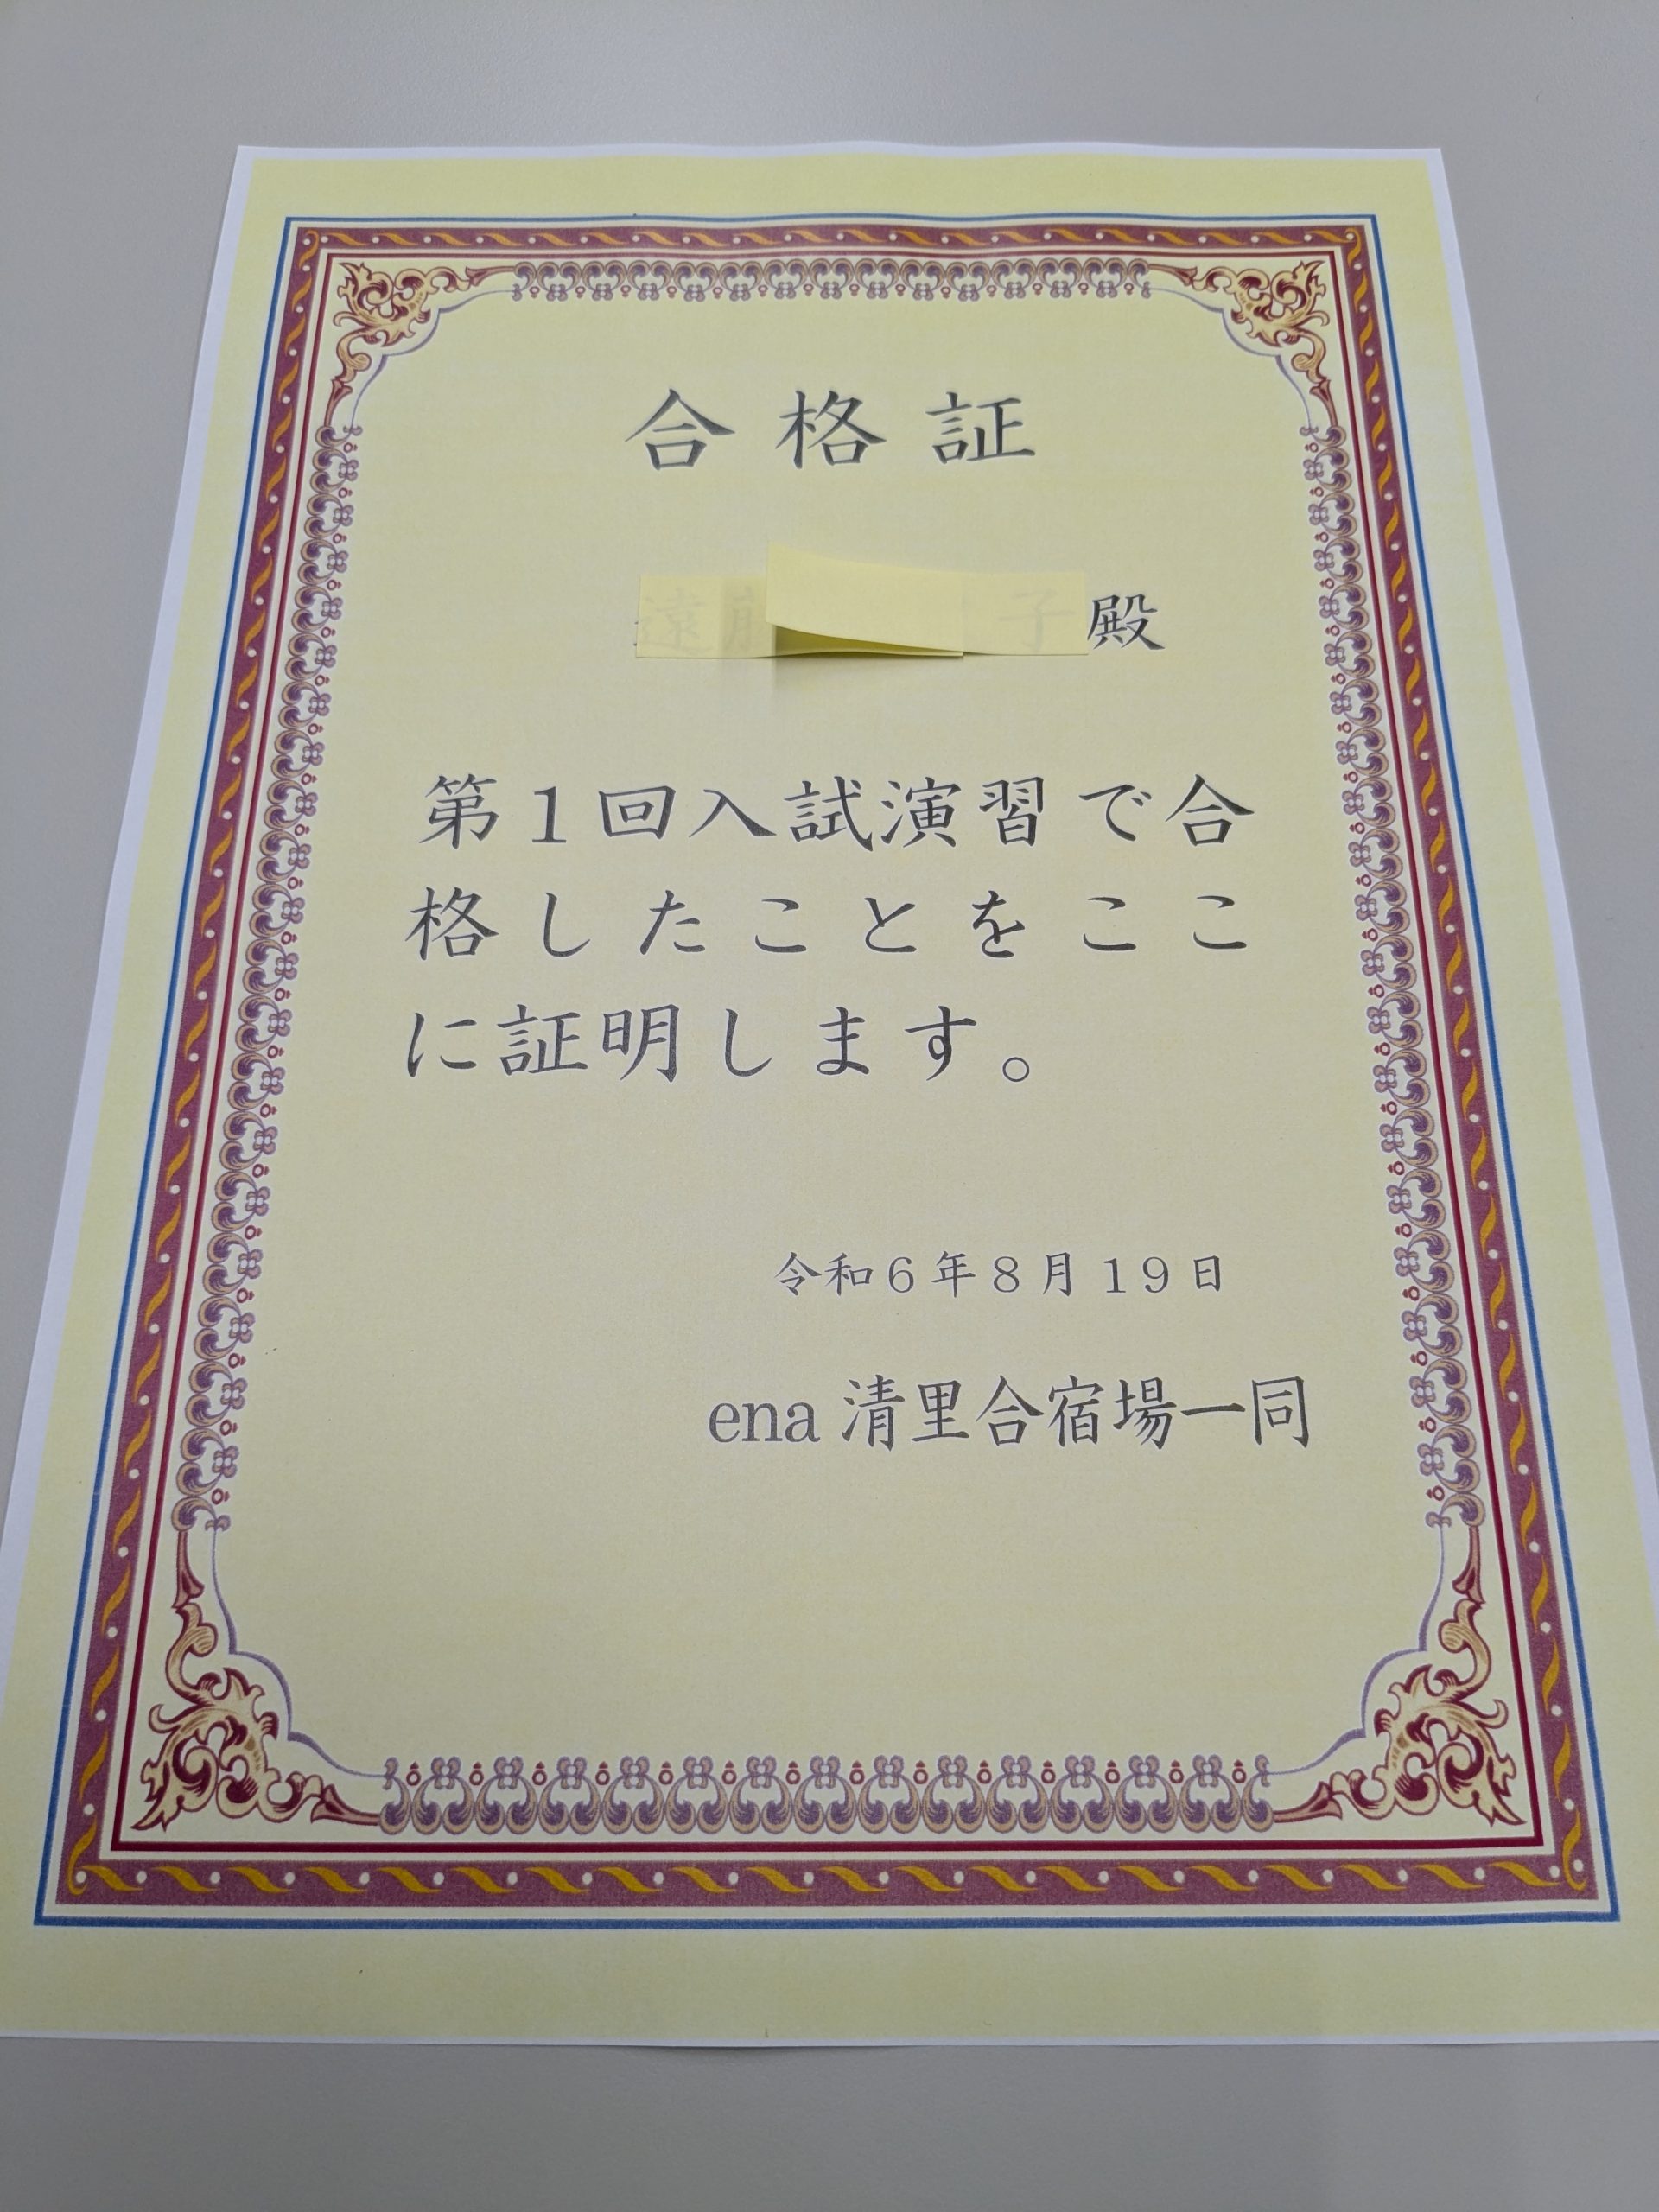 合格証
殿
第1回入試演習で合
格したことをここ
に証明します。
令和6年8月19日
ena 清里合宿場一同